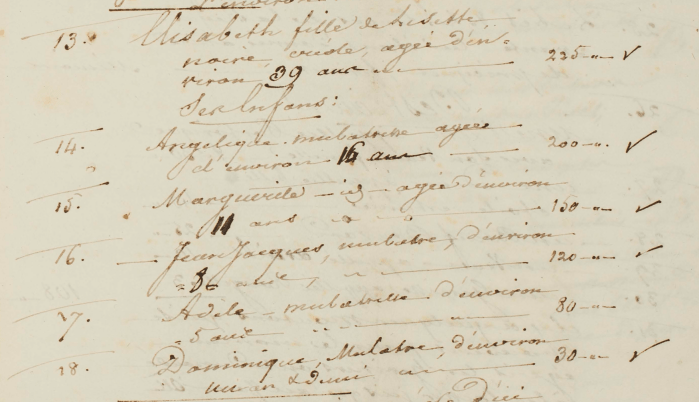 d'environ
13. Elisabeth fille de Lisette
noire, creole, agée d'en-
viron 39 ans 225 -"- ✓
Ses Enfans:
14. Angelique mulatresse agée
d'environ 14 ans 200 -"- ✓
15. Marguerite - id - agée d'environ
11 ans 150 -"- ✓
16. Jean Jacques, mulatre, d'environ
- 8 - ans, 120 -"- ✓
17. Adele - mulatresse d'environ
- 5 ans 80 -"-
18. Dominique, Mulatre, d'environ
un an & Demi 30 -"- ✓